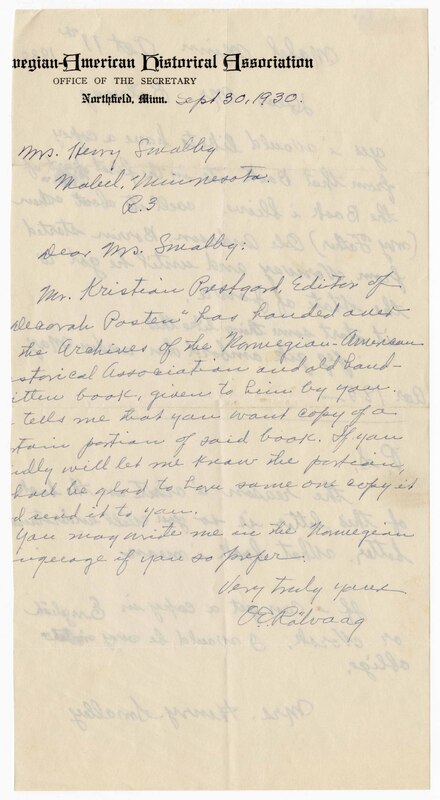 wegian-American Historical Association
OFFICE OF THE SECRETARY
Northfield, Minn. Sept 30, 1930.
Mrs. Henry Smalby
Mabel, Minnesota.
R. 3
Dear Mrs. Smalby:
Mr. Kristian Prestgard, Editor of
Decorah Posten" has handed over
the Archives of the Norwegian-American
storical Association and old hand-
itten book, given to him by you.
tells me that you want copy of a
tain portion of said book. If you
dly will let me know the portion,
hall be glad to have some one copy it
d send it to you.
You may write me in the Norwegian
nguage if you so prefer.
Very truly yours
O.E. Rölvaag
Mrs. Henry Smalby